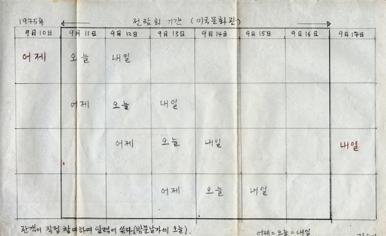 1975年
전람회 기간 (미국문화관)
9月10日 9月11日 9月12日 9月13日 9月14日 9月15日 9月16日 9月17日
어제 오늘 내일
어제 오늘 내일
어제 오늘 내일 내일
어제 오늘 내일
어제=오늘=내일